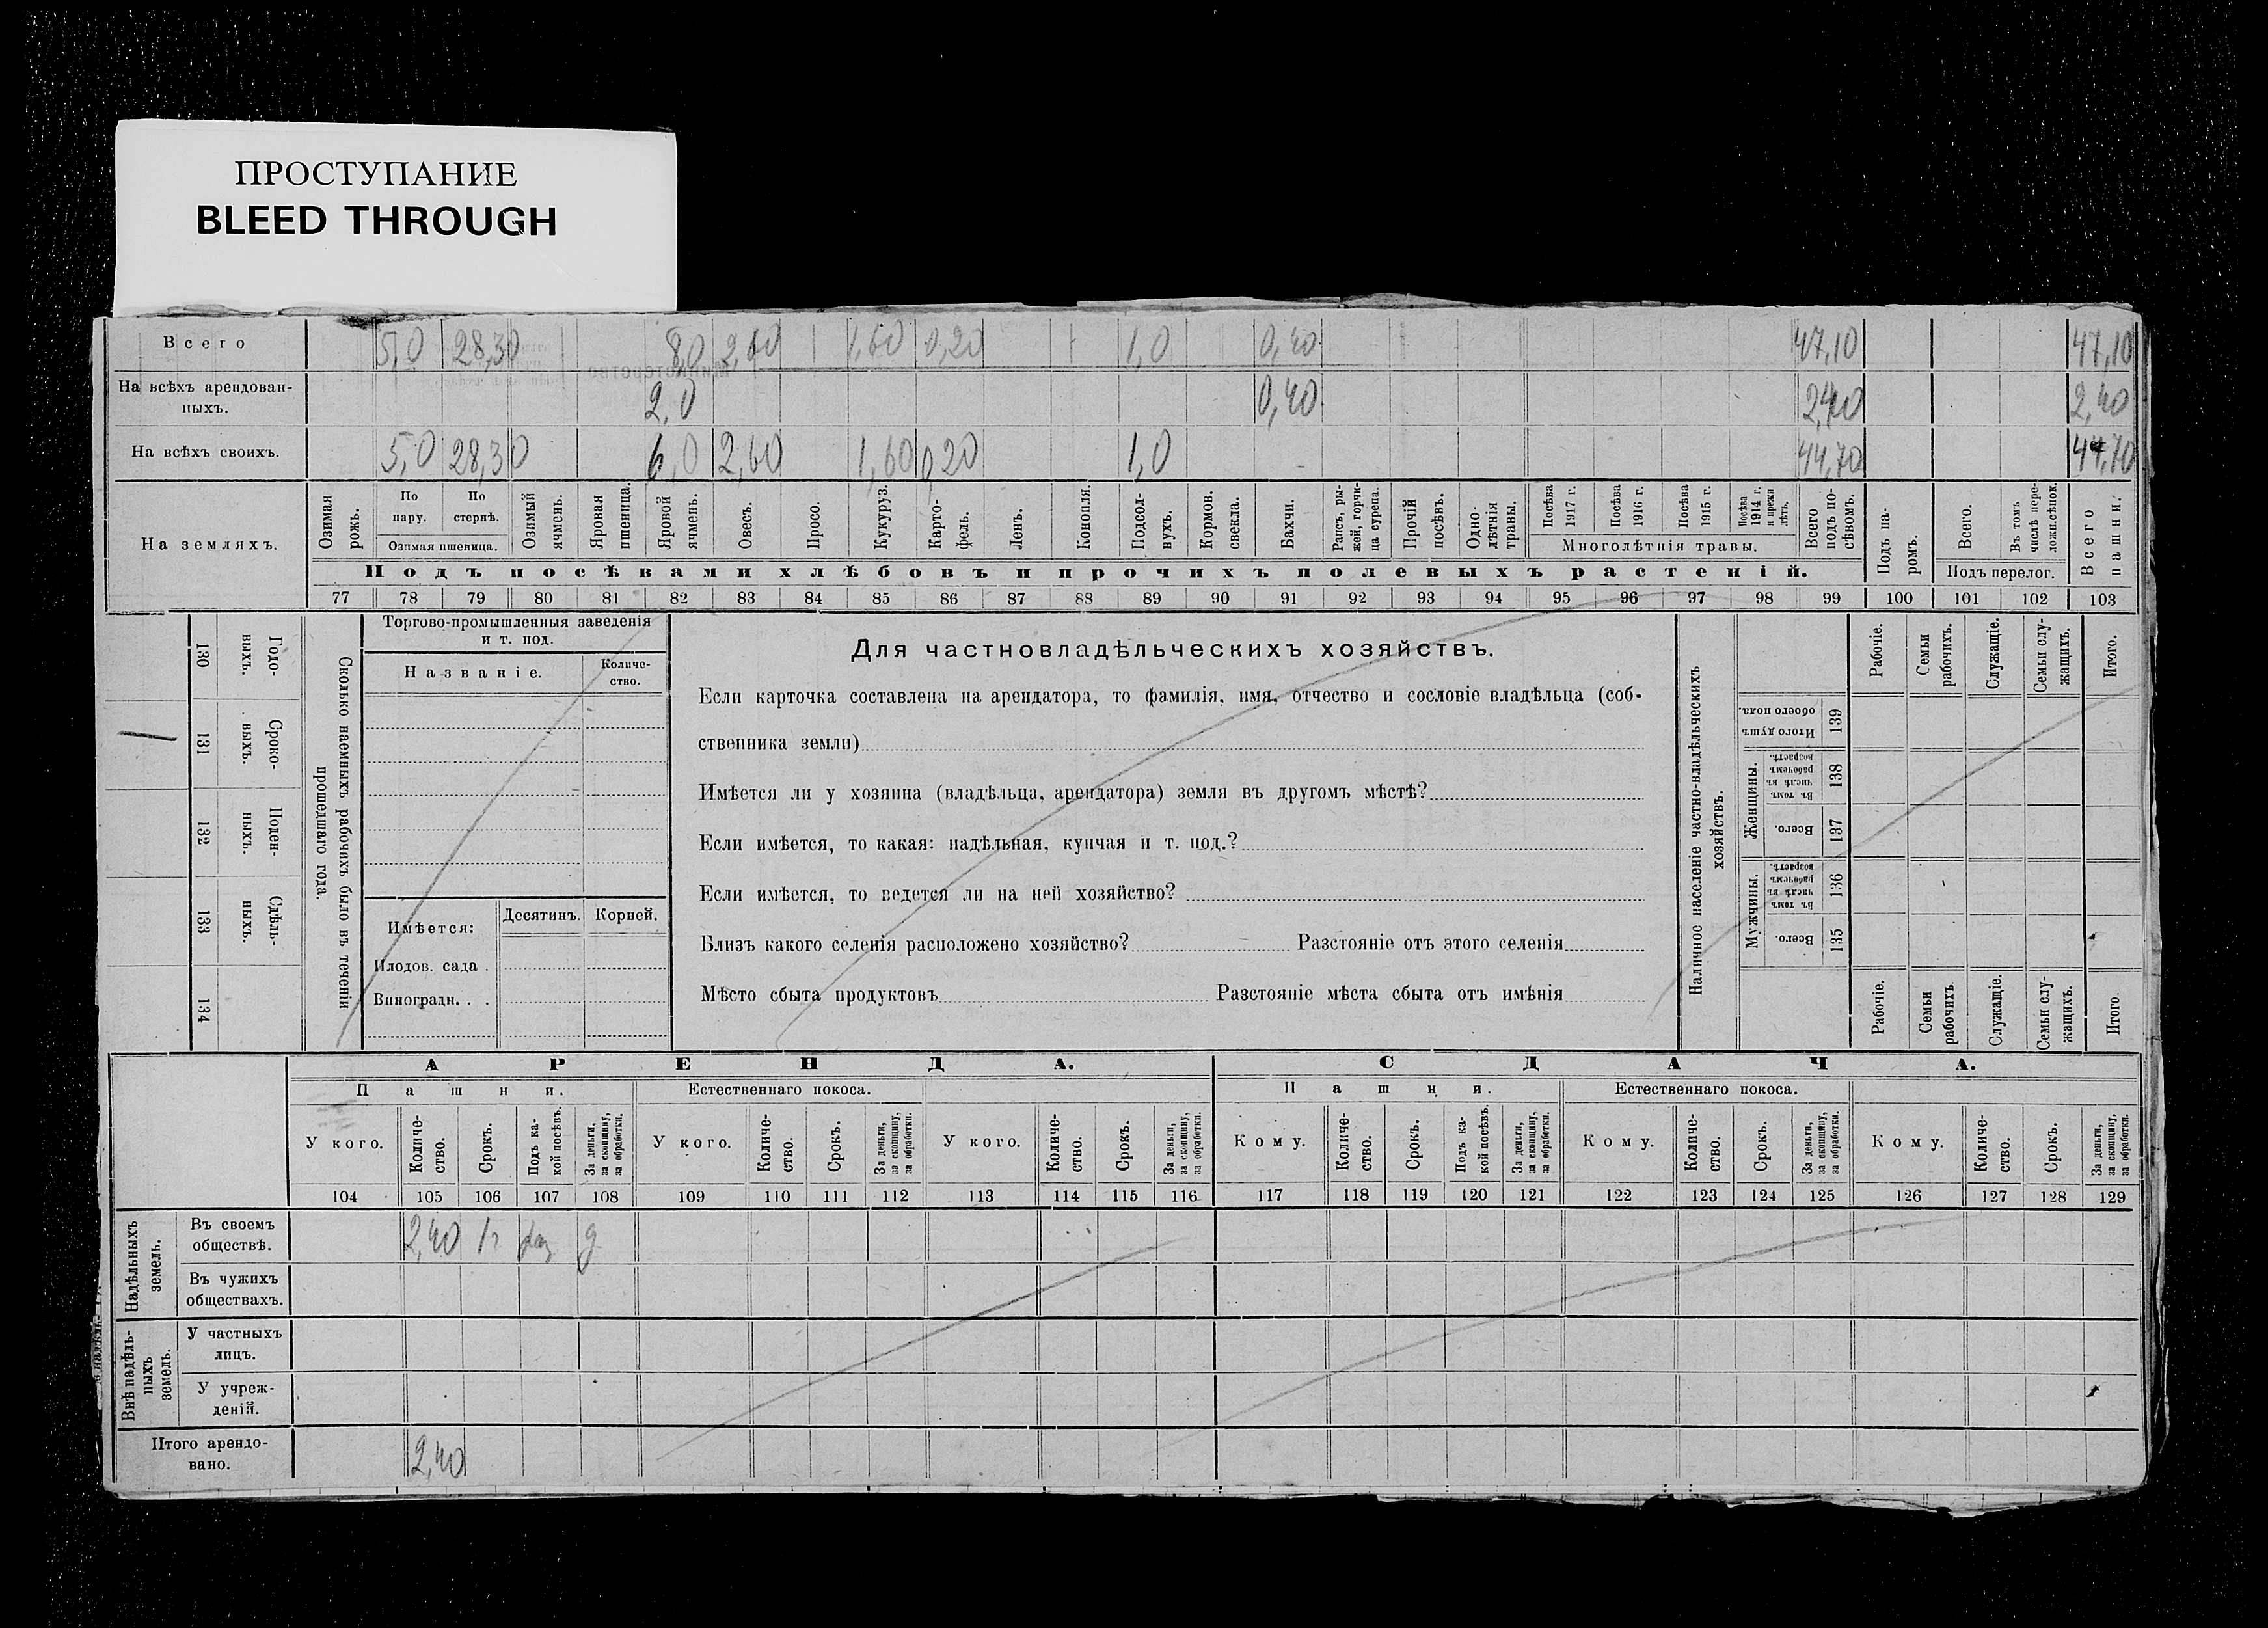 ПРОСТУПАНИЕ
BLEED THROUGH
Всего 5,0 28,30 8,0 2,60 1,60 0,20 1,0 0,40 47,10 47,10
На всѣхъ арендован-
ныхъ. 2,0 0,40 2,40 2,40
На всѣхъ своихъ. 5,0 28,30 6,0 2,60 1,60 0,20 1,0 44,70 44,70
На земляхъ.
Озимая рожь.
По пару.
По стернѣ.
Озимая пшеница.
Озимый ячмень.
Яровая пшеница.
Яровой ячмень.
Овесъ.
Просо.
Кукуруз.
Карто-
фель.
Ленъ.
Конопля.
Подсол-
нухъ.
Кормов. свекла.
Бахчи.
Рапсъ, ры-
жей, горчи-
ца сурепа.
Прочій посѣвъ.
Одно-
лѣтнія травы.
Посѣва 1917 г.
Посѣва 1916 г.
Посѣва 1915 г.
Посѣва 1914 г. и прежн лѣтъ.
Многолѣтнія травы.
Всего подъ по-
сѣвомъ.
Подъ па-
ромъ.
Всего.
Въ томъ числѣ пере-
ложн.сѣнок.
Подъ перелог.
Всего пашни.
Подъ посѣвами хлѣбовъ и прочихъ полевыхъ растеній.
77 78 79 80 81 82 83 84 85 86 87 88 89 90 91 92 93 94 95 96 97 98 99 100 101 102 103
130 Годо-
выхъ.
131 Сроко-
ныхъ.
132 Поден-
ныхъ.
133 Сдѣль-
ныхъ.
134
Сколько наемныхъ рабочихъ было въ теченіи
прошедшаго года.
Торгово-промышленныя заведенія
и т. под.
Названіе. Количе-
ство.
Имѣется: Десятинъ. Корней.
Плодов. сада .
Виноградн. . .
Для частновладѣльческихъ хозяйствъ.
Если карточка составлена на арендатора, то фамилія, имя, отчество и сословіе владѣльца (соб-
ственника земли)
Имѣется ли у хозяина (владѣльца, арендатора) земля въ другомъ мѣстѣ?
Если имѣется, то какая: надѣльная, купчая и т. под.?
Если имѣется, то ведется ли на ней хозяйство?
Близъ какого селенія расположено хозяйство? Разстояніе отъ этого селенія
Мѣсто сбыта продуктовъ Разстояніе мѣста сбыта отъ имѣнія
Наличное населеніе частно-владѣльческихъ
хозяйствъ.
Рабочіе.
Семьи рабочихъ.
Служащіе.
Семьи слу-
жащихъ.
Итого.
Итого душъ обоего пола. 139
Женщины.
Въ томъ числѣ въ рабочемъ возрастѣ. 138
Всего. 137
Мужчины.
Въ томъ числѣ въ рабочемъ возрастѣ. 136
Всего. 135
Рабочіе.
Семьи рабочихъ.
Служащіе.
Семьи слу-
жащихъ.
Итого.
АРЕНДА. СДАЧА.
Пашни. Естественнаго покоса. Пашни. Естественнаго покоса.
У кого. Количе-
ство. Срокъ. Подъ ка-
кой посѣвъ. За деньги, за скопщину, за обработки.
У кого. Количе-
ство. Срокъ. За деньги, за скопщину, за обработки.
У кого. Количе-
ство. Срокъ. За деньги, за скопщину, за обработки.
Кому. Количе-
ство. Срокъ. Подъ ка-
кой посѣвъ. За деньги, за скопщину, за обработки.
Кому. Количе-
ство. Срокъ. За деньги, за скопщину, за обработки.
Кому. Количе-
ство. Срокъ. За деньги, за скопщину, за обработки.
104 105 106 107 108 109 110 111 112 113 114 115 116 117 118 119 120 121 122 123 124 125 126 127 128 129
Надѣльныхъ земель.
Въ своемъ
обществѣ. 2,40 1г д
Въ чужихъ
обществахъ.
Внѣ надѣль-
ныхъ земель.
У частныхъ
лицъ.
У учреж-
деній.
Итого арендо-
вано. 2,40